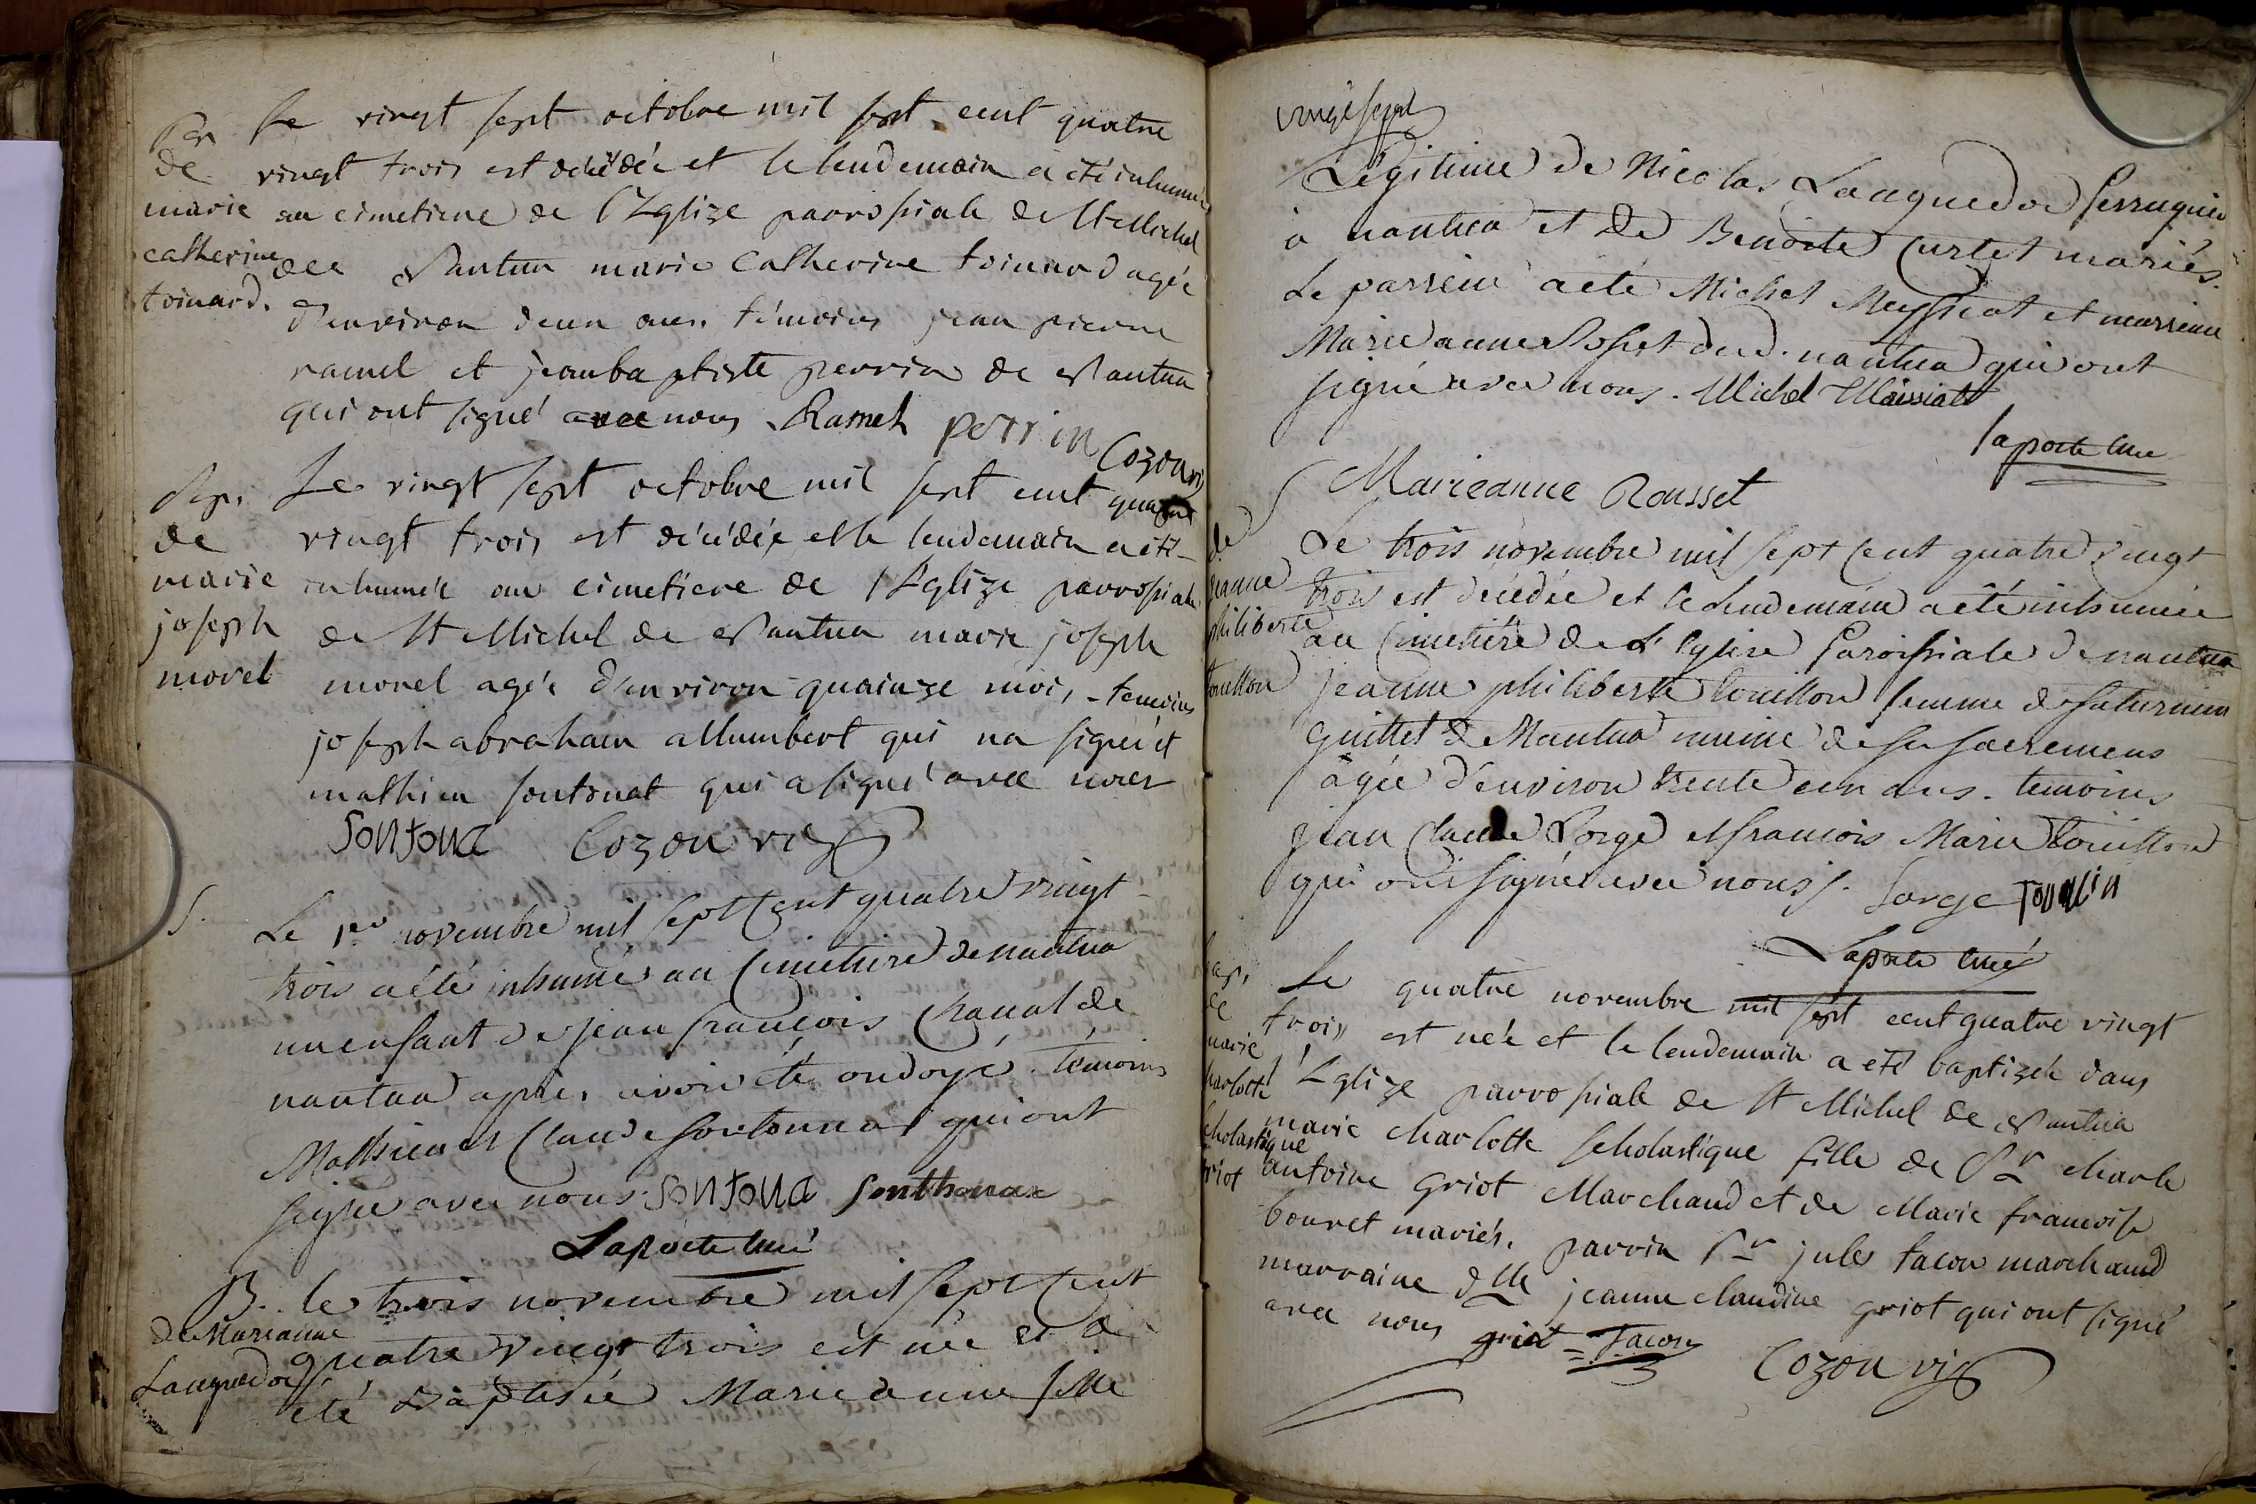 Sep.
de
marie
catherine
toinard.
Le vingt sept octobre mil sept cent quatre
vingt trois est décédée et le lendemain a été inhumée
au cimetiere de l'Eglize parrossiale de St Michel
de Nantua marie Catherine toinard agée
d'environ deux ans. témoins jean pierre
ramel et jeanbaptiste perrin de Nantua
qui ont signé avec nous Ramel perrin Cozon vic
Sep.
de
marie
joseph
morel
Le vingt sept octobre mil sept cent quatre
vingt trois est décédée et le lendemain a été
inhumée au cimetiere de l'Eglize parrossiale
de St Michel de Nantua marie joseph
morel agée d'environ quainze mois, temoins
joseph abraham allumbert qui na signé et
mathieu sontonat qui a signé avec nous
Sontona Cozon vic
S.
Le 1er novembre mil sept cent quatre vingt
trois a été inhumé au Cimetiere de nantua
un enfant de jean françois Chanal de
nantua après avoir été ondoyé. témoins
Mathieu et Claude sontonnas qui ont
signé avec nous. Sontona Sonthonax
Laporte Curé
B.
de Marianne
Languedoc
le trois novembre mil sept cent
quatre vingt trois est née et a
été Baptisée Marie anne fille
vingt sept
Légitime de Nicolas Languedoc Perruquier
à nantua et de Benoite Curtet mariés.
Le parrein a été Michel Meyssiat et marreine
Marie anne Rosset dud. nantua qui ont
signé avec nous. Michel Maissiat
laporte Curé
Marieanne Rousset
S
de
jeanne
philiberte
touillon
Le trois novembre mil sept cent quatre vingt
trois est décédée et le Lendemain a été inhumée
au Cimetiere de L'Eglise Paroissiale de nantua
jeanne philiberte touillon femme de saturnin
Guittet de Nantua munie de ses sacremens
agée d'environ trente cin ans. temoins
jean Claude Sorge et francois Marie touillon
qui ont signé avec nous. Sorge
Laporte Curé
Bap.
de
marie
charlotte
scholastique
griot
Le quatre novembre mil sept cent quatre vingt
trois est née et le lendemain a été baptizée dans
l'Eglize parrossiale de St Michel de Nantua
marie charlotte scholastique fille de Sr charle
antoine griot Marchand et de Marie francoise
bouvet mariés. parrin Sr jules tacon marchand
marraine dlle jeanne claudine griot qui ont signé
avec nous griot = Tacon Cozon vic